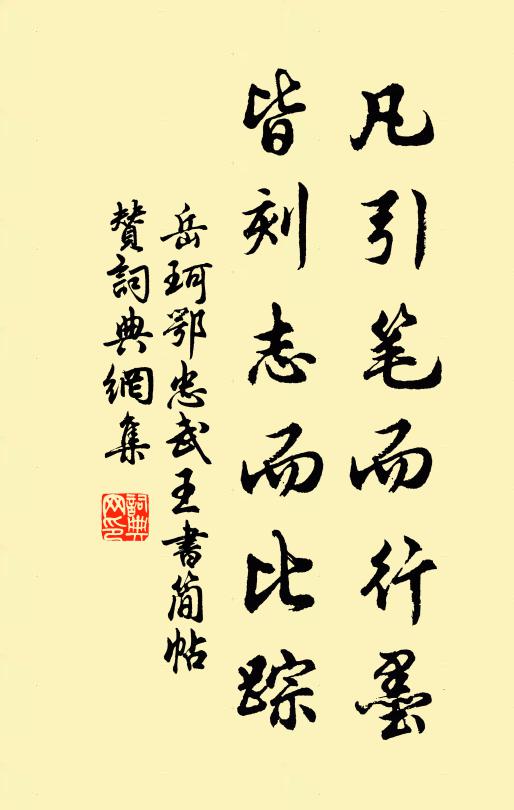 凡引笔而行墨
皆刻志而比踪
岳珂鄂忠武王書简帖
赞詞典網集
詞典网印